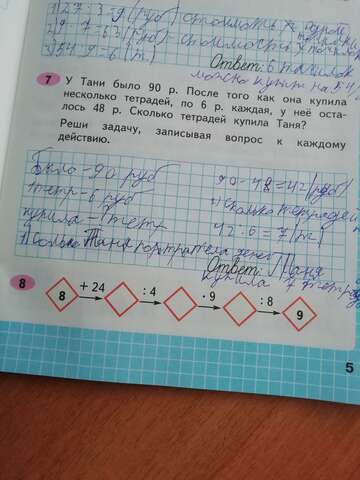 1) 27:3=9 (руб)
2) 9·7=63 (руб)
3) 54:9=6 (т)
Ответ: 6
можно купит на 54
7 У Тани было 90 р. После того как она купила
несколько тетрадей, по 6 р. каждая, у неё оста-
лось 48 р. Сколько тетрадей купила Таня?
Реши задачу, записывая вопрос к каждому
действию.
Было - 90 руб
1 тетр - 6 руб
купила - ? тетр
1) Сколько Таня потратела денег
90-48=42 (руб)
2) Сколько тетрадей
42:6=7 (т)
Ответ: Таня
купила 7 тетрад
8 8 + 24 : 4 · 9 : 8 9
5